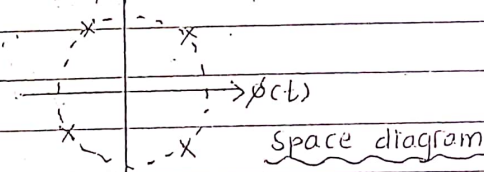 φ(t)
Space diagram